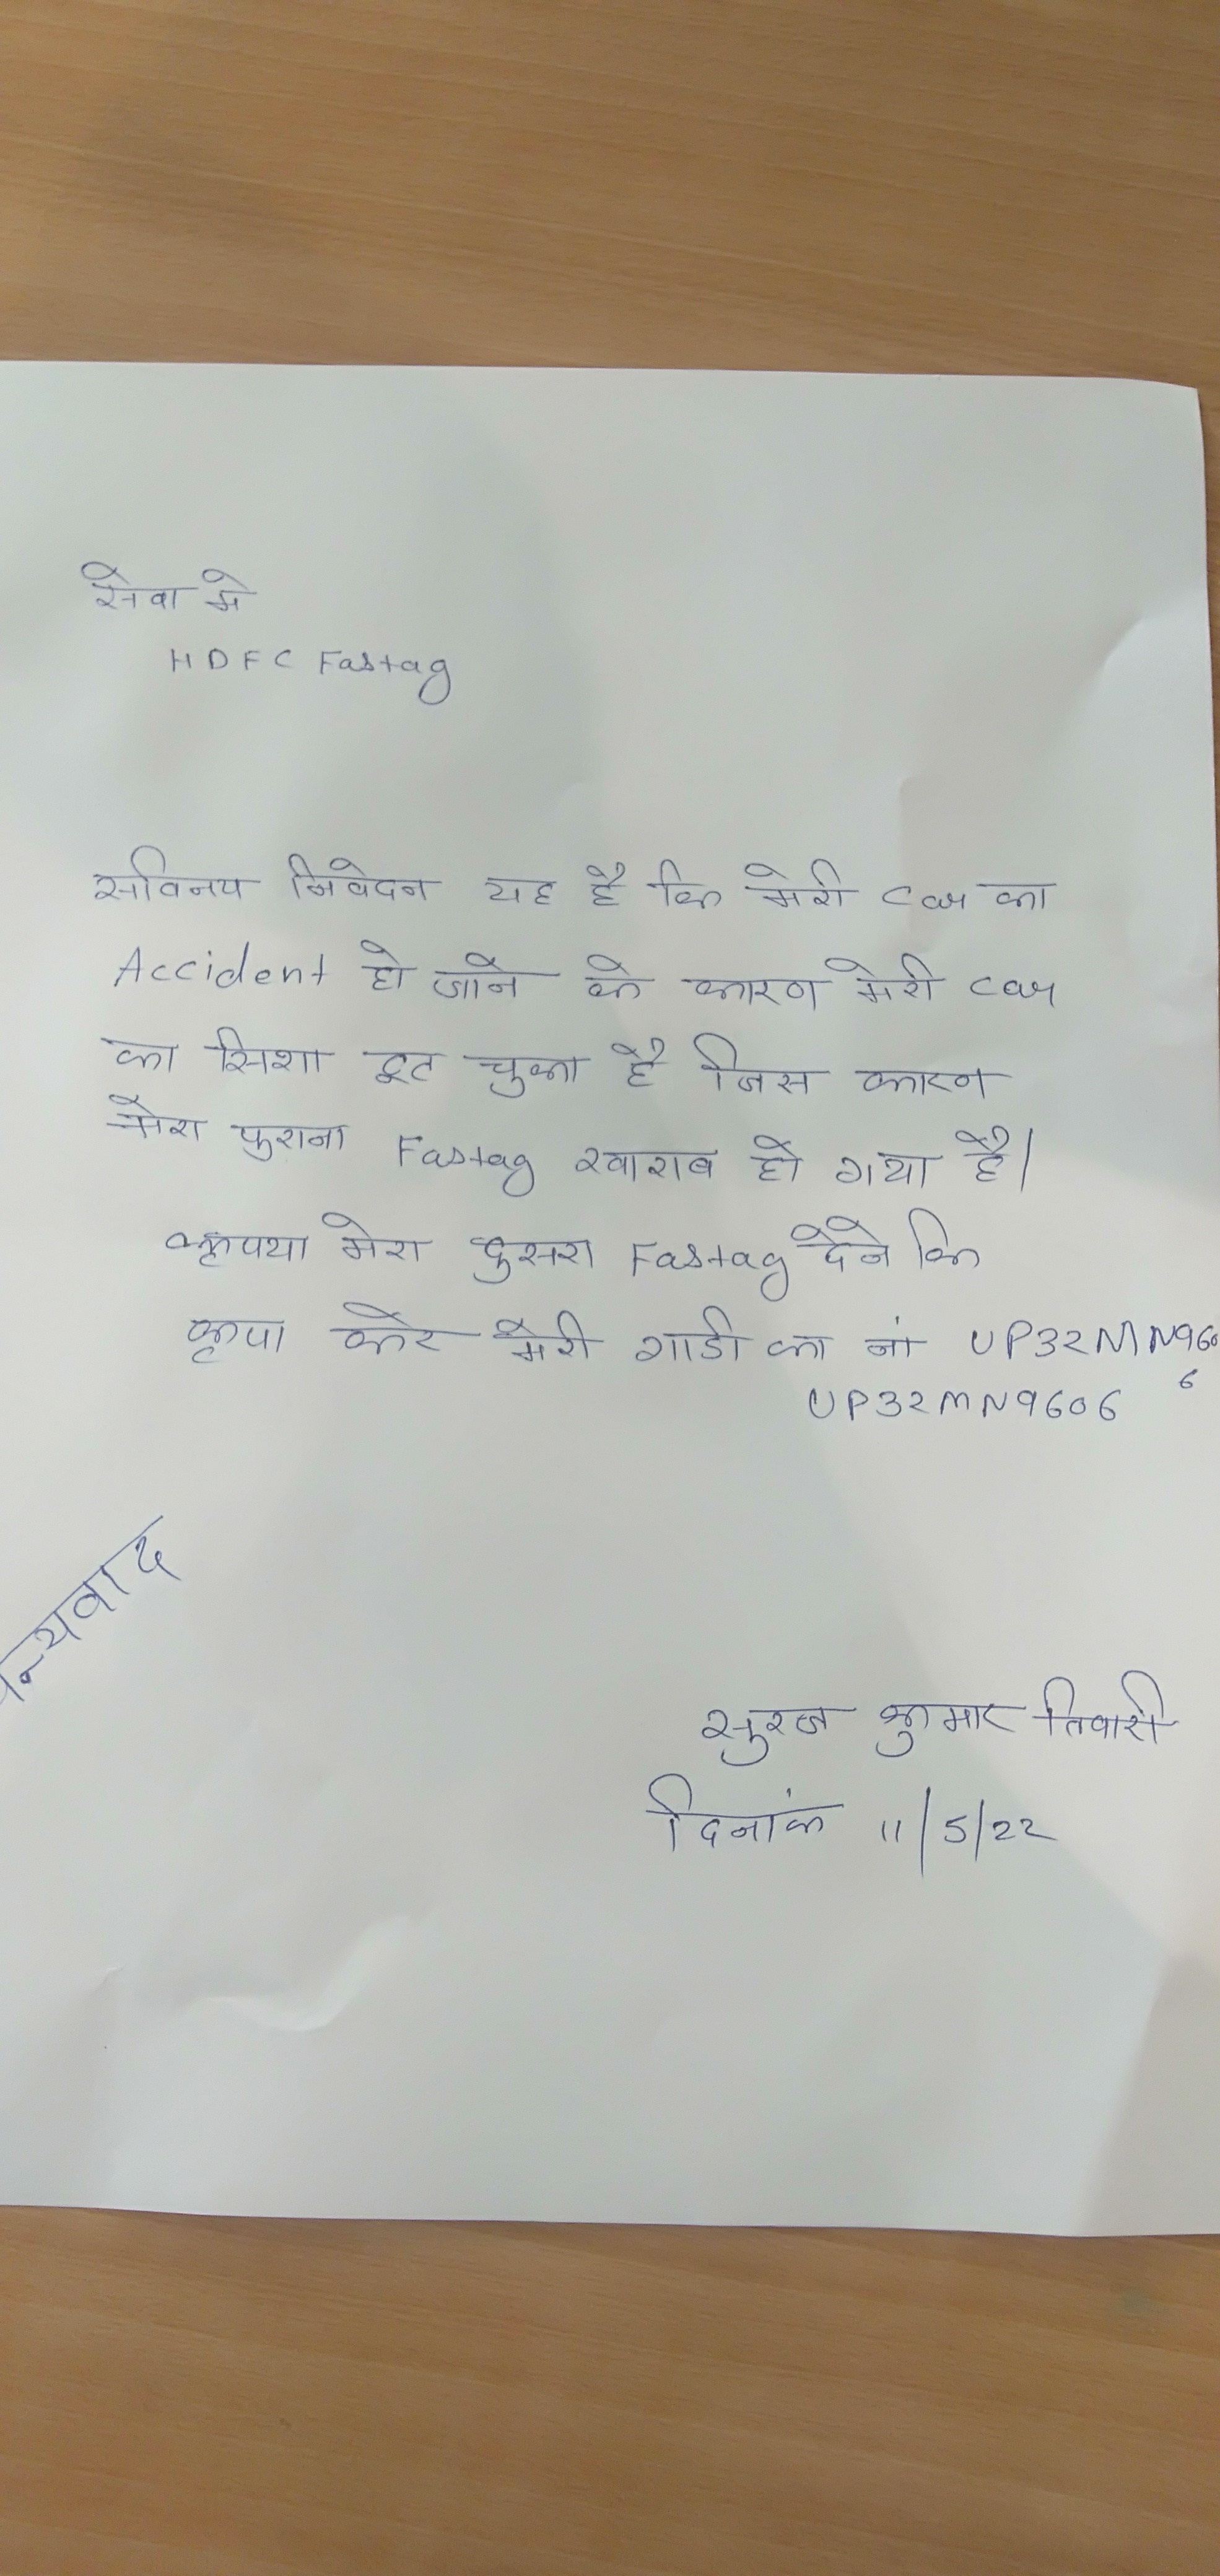 सेवा मे
HDFC Fastag
सविनय निवेदन यह है कि मेरी car का
Accident हो जाने के कारण मेरी car
का सिशा टूट चुका है जिस कारण
मेरा पुराना Fastag खाराब हो गया है।
कृपया मेरा दुसरा Fastag देने कि
कृपा करे मेरी गाडी का नां UP32MN960
6
UP32MN9606
धन्यवाद
सुरज कुमार तिवारी
दिनांक 11/5/22